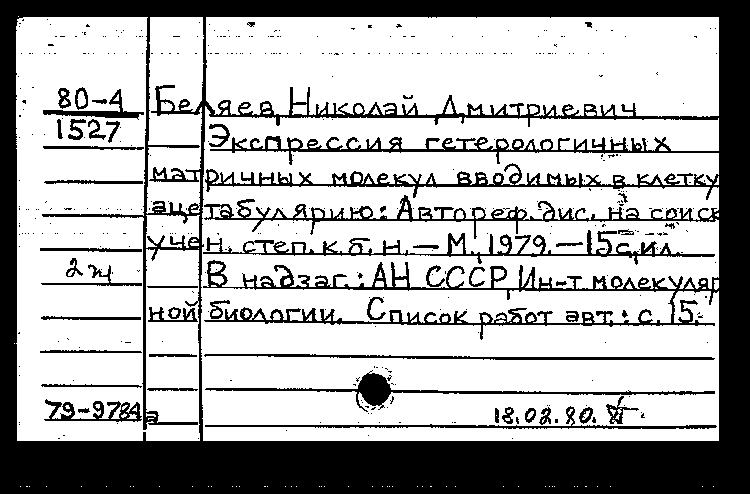 80-4 Беляев, Николай Дмитриевич
1527 Экспрессия гетерологичных
матричных молекул вводимых в клетку
ацетабулярию: Автореф. дис. на соиск
учен. степ. к. б. н. — М., 1979. — 15 с, ил.
2 ж В надзаг.: АН СССР, Ин-т молекуляр
ной биологии. Список работ авт.: с. 15.
79-9784а 18.02.80.